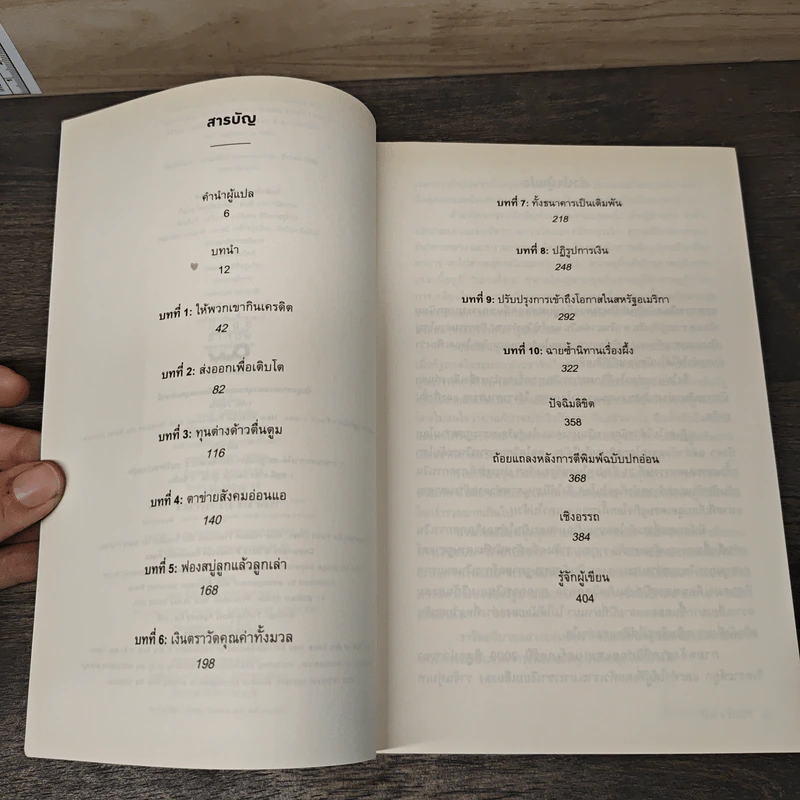 สารบัญ
คำนำผู้แปล
6
บทนำ
12
บทที่ 1: ให้พวกเขากินเครดิต
42
บทที่ 2: ส่งออกเพื่อเติบโต
82
บทที่ 3: ทุนต่างด้าวตื่นตูม
116
บทที่ 4: ตาข่ายสังคมอ่อนแอ
140
บทที่ 5: ฟองสบู่ลูกแล้วลูกเล่า
168
บทที่ 6: เงินตราวัดคุณค่าทั้งมวล
198
บทที่ 7: ทั้งธนาคารเป็นเดิมพัน
218
บทที่ 8: ปฏิรูปการเงิน
248
บทที่ 9: ปรับปรุงการเข้าถึงโอกาสในสหรัฐอเมริกา
292
บทที่ 10: ฉายซ้ำนิทานเรื่องผึ้ง
322
ปัจฉิมลิขิต
358
ถ้อยแถลงหลังการตีพิมพ์ฉบับปกอ่อน
368
เชิงอรรถ
384
รู้จักผู้เขียน
404